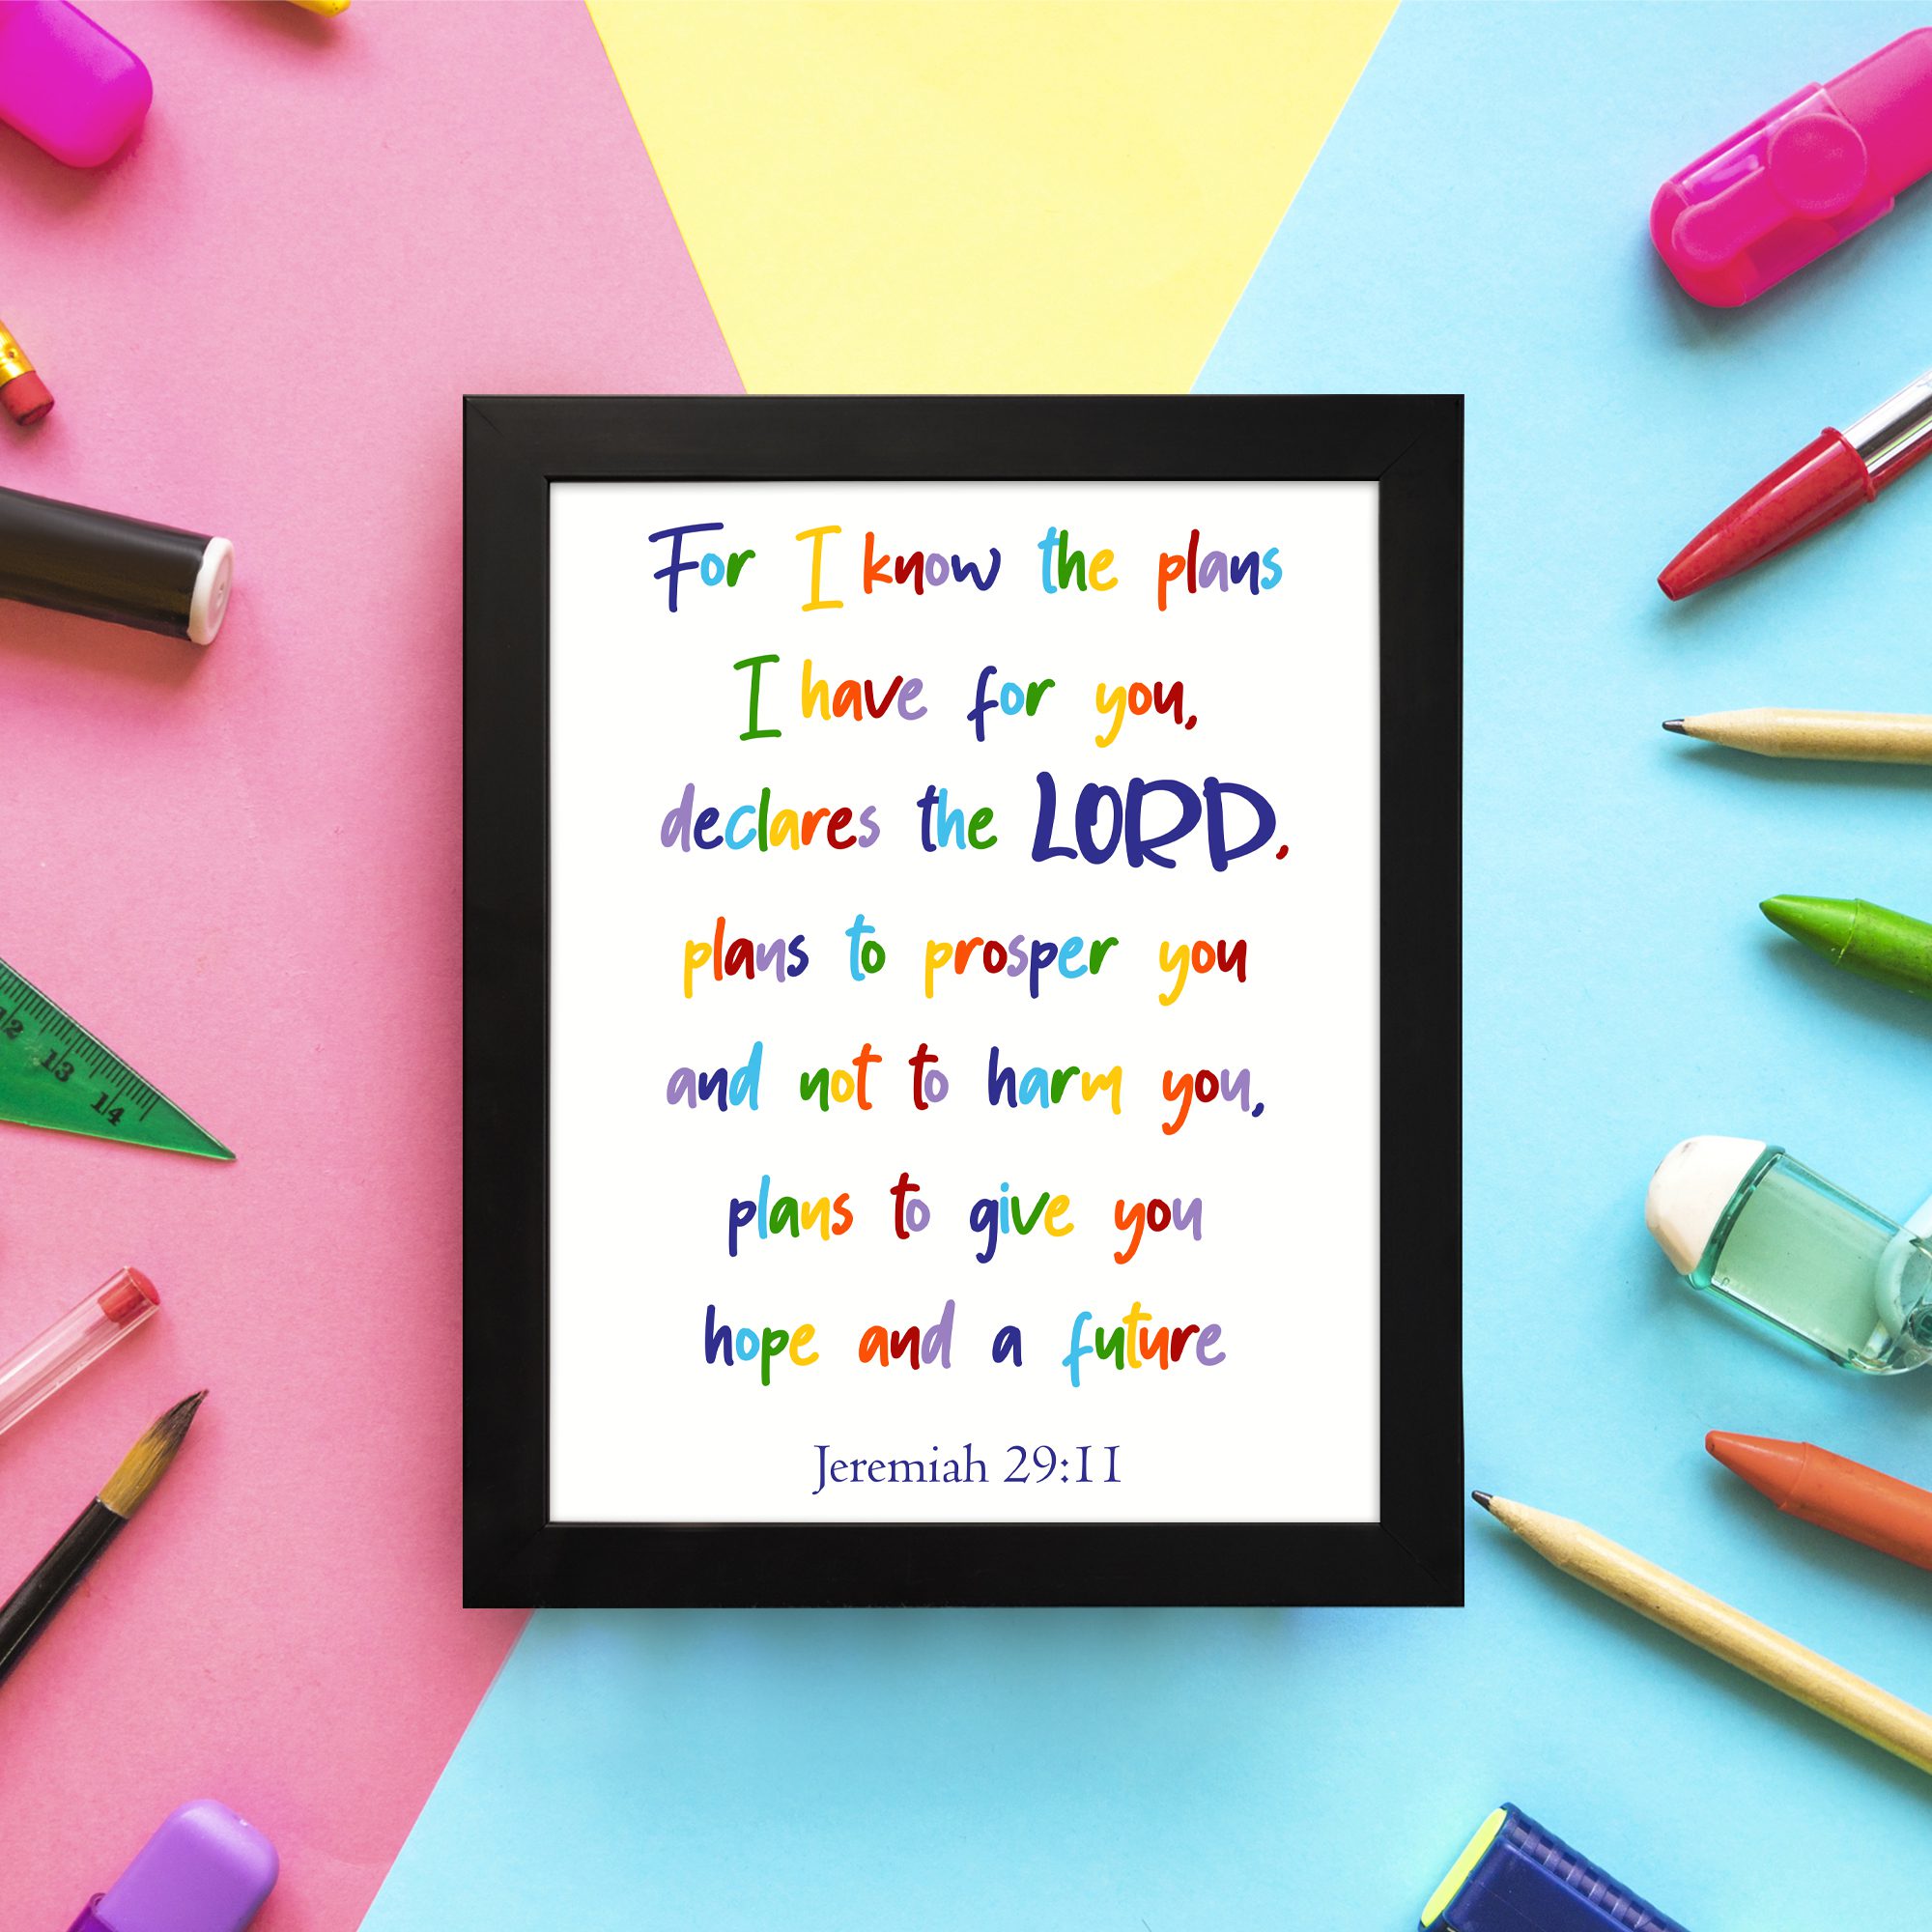 For I know the plans
I have for you,
declares the LORD,
plans to prosper you
and not to harm you,
plans to give you
hope and a future
Jeremiah 29:11
12
13
14